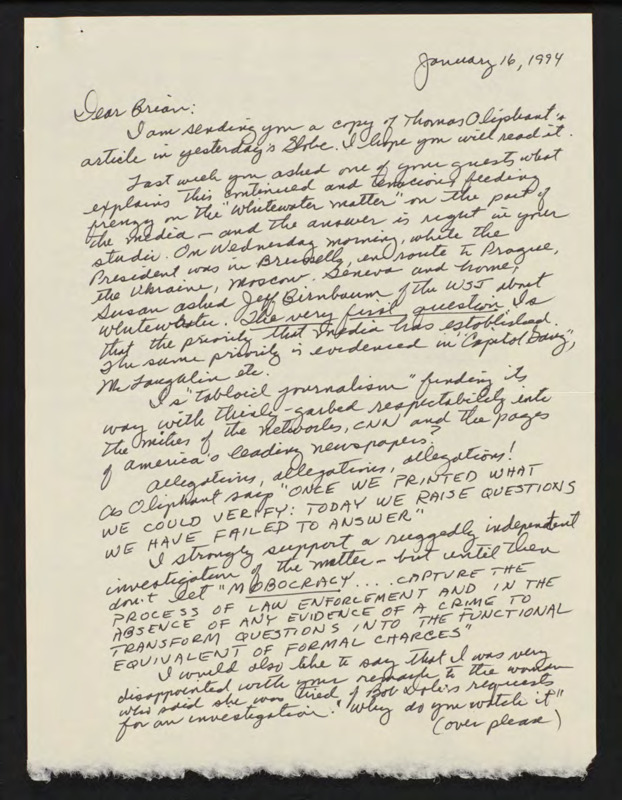 January 16, 1994
Dear Brian:
I am sending you a copy of Thomas Oliphant's
article in yesterday's Globe. I hope you will read it.
Last week you asked one of your guests what
explains this continued and tenacious feeding
frenzy on the "Whitewater matter" on the part of
the media – and the answer is right in your
studio. On Wednesday morning, while the
President was in Brusselly, enroute to Prague,
the Ukraine, Moscow, Geneva and home,
Susan asked Jeff Birnbaum of the WSJ about
Whitewater. The very first question. Is
that the priority that media has established.
The same priority is evidenced in "Capitol Gang",
McLaughlin etc.
Is "tabloid journalism" finding its
way with thinly-garbed respectability into
the of the networks, CNN and the pages
of America's leading newspapers?
Allegations, allegations, allegations!
As Oliphant says "ONCE WE PRINTED WHAT
WE COULD VERIFY: TODAY WE RAISE QUESTIONS
WE HAVE FAILED TO ANSWER"
I strongly support a ruggedly independent
investigation of the matter – but until then
don't let "MOBOCRACY .... CAPTURE THE
PROCESS OF LAW ENFORCEMENT AND IN THE
ABSENCE OF ANY EVIDENCE OF A CRIME TO
TRANSFORM QUESTIONS INTO THE FUNCTIONAL
EQUIVALENT OF FORMAL CHARGES"
I would also like to say that I was very
disappointed with your remark to the woman
who said she was tired of Bob Dole's requests
for an investigation. "Why do you watch it"
(over please)